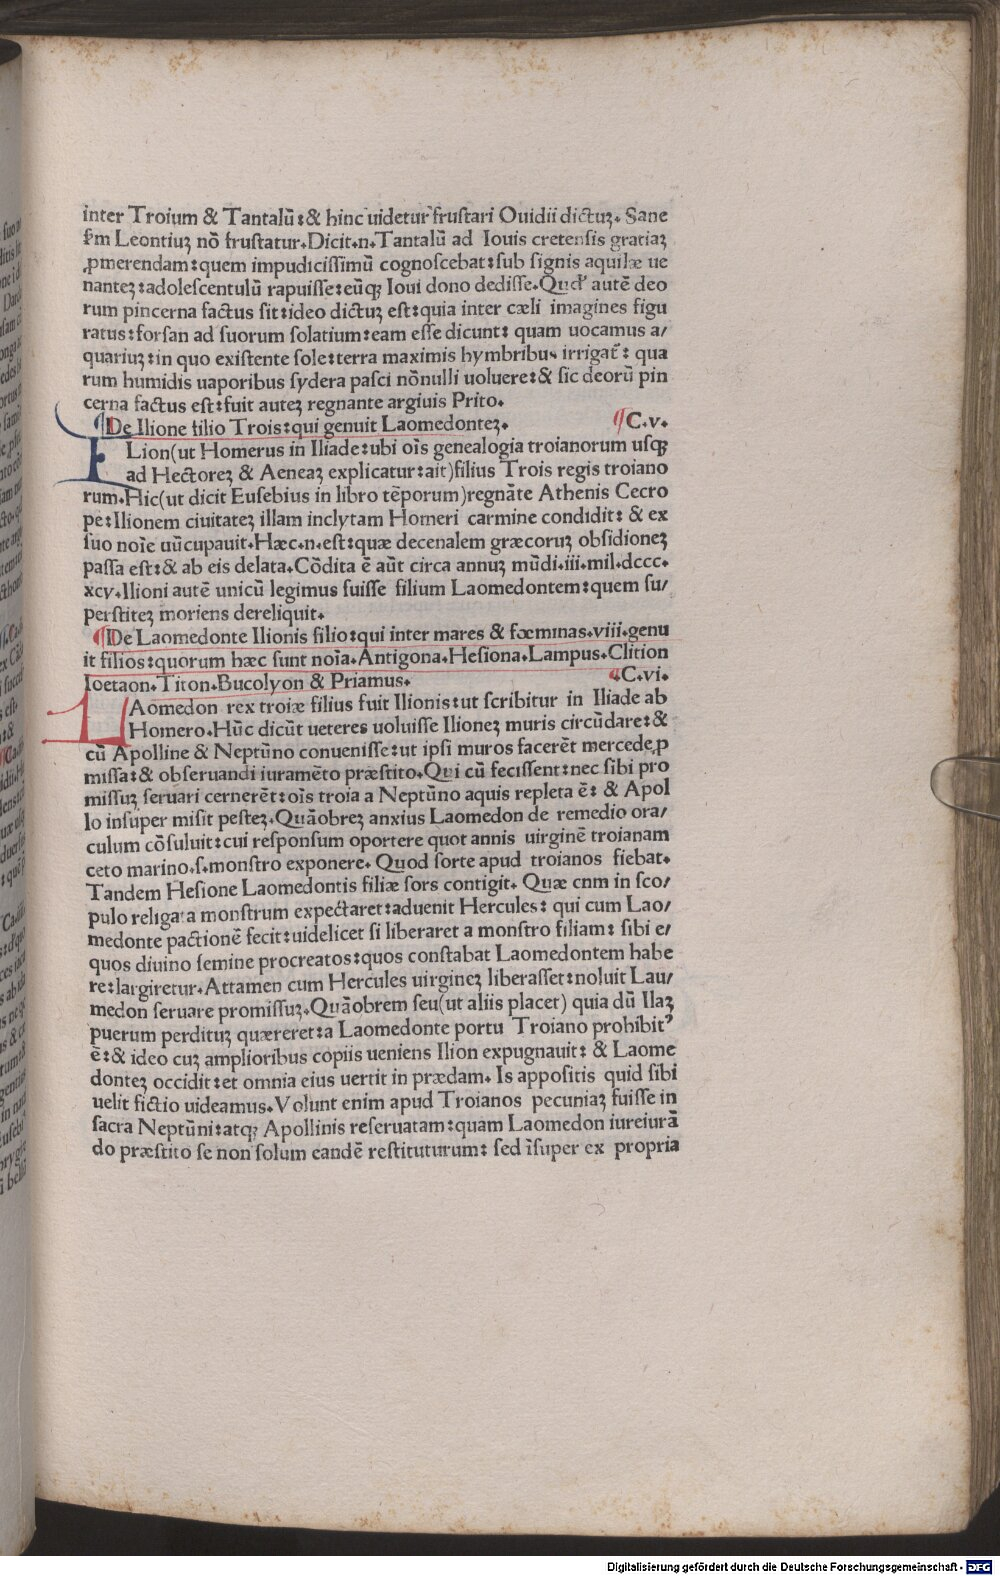 inter Troium & Tantalū:& hinc uidetur frustari Ouidii dictuꝫ. Sane
ſm Leontiuꝫ nō fruſtatur.Dicit.n.Tantalū ad Iouis cretenſis gratiaꝫ
ꝓmerendam:quem impudiciſſimū cognoſcebat:ſub ſignis aquilæ ue
nanteꝫ:adoleſcentulū rapuiſſe:eūqꝫ Ioui dono dediſſe.Quđ autē deo
rum pincerna factus ſit:ideo dictuꝫ eſt:quia inter cæli imagines figu
ratus:forſan ad ſuorum ſolatium:eam eſſe dicunt: quam uocamus a/
quariuꝫ:in quo exiſtente ſole:terra maximis hymbribus irrigat̄: qua
rum humidis uaporibus ſydera paſci nōnulli uoluere:& ſic deorū pin
cerna factus eſt:fuit auteꝫ regnante argiuis Prito.
¶De Ilione filio Trois:qui genuit Laomedonteꝫ. ¶C.v.
I Lion(ut Homerus in Iliade:ubi oīs genealogia troianorum uſqꝫ
ad Hectoreꝫ & Aeneaꝫ explicatur:ait)filius Trois regis troiano
rum.Hic(ut dicit Euſebius in libro tēporum)regnāte Athenis Cecro
pe:Ilionem ciuitateꝫ illam inclytam Homeri carmine condidit: & ex
ſuo noīe uūcupauit.Hæc.n.eſt:quæ decenalem græcoruꝫ obſidioneꝫ
paſſa eſt:& ab eis delata.Cōdita ē aūt circa annuꝫ mūdi.iii.mil.dccc.
xcv.Ilioni autē unicū legimus fuiſſe filium Laomedontem:quem ſu/
perſtiteꝫ moriens dereliquit.
¶De Laomedonte Ilionis filio:qui inter mares & fœminas.viii.genu
it filios:quorum hæc ſunt noīa.Antigona.Heſiona.Lampus.Clition
Ioetaon.Titon.Bucolyon & Priamus. ¶C.vi.
L Aomedon rex troiæ filius fuit Ilionis:ut ſcribitur in Iliade ab
Homero.Hūc dicūt ueteres uoluiſſe Ilioneꝫ muris circūdare:&
cū Apolline & Neptūno conueniſſe:ut ipſi muros facerēt mercede ꝓ
miſſa:& obſeruandi iuramēto præſtito.Qui cū feciſſent:nec ſibi pro
miſſuꝫ ſeruari cernerēt:oīs troia a Neptūno aquis repleta ē: & Apol
lo inſuper miſit peſteꝫ.Quāobreꝫ anxius Laomedon de remedio ora/
culum cōſuluit:cui reſponſum oportere quot annis uirginē troianam
ceto marino.ſ.monſtro exponere. Quod ſorte apud troianos fiebat.
Tandem Heſione Laomedontis filiæ ſors contigit. Quæ cnm in ſco/
pulo religata monſtrum expectaret:aduenit Hercules: qui cum Lao/
medonte pactionē fecit:uidelicet ſi liberaret a monſtro filiam: ſibi e/
quos diuino ſemine procreatos:quos conſtabat Laomedontem habe
re:largiretur.Attamen cum Hercules uirgineꝫ liberaſſet:noluit Lau/
medon ſeruare promiſſuꝫ.Quāobrem ſeu(ut aliis placet) quia dū Ilaꝫ
puerum perdituꝫ quæreret:a Laomedonte portu Troiano prohibitꝰ
ē:& ideo cuꝫ amplioribus copiis ueniens Ilion expugnauit: & Laome
donteꝫ occidit:et omnia eius uertit in prædam. Is appoſitis quid ſibi
uelit fictio uideamus.Volunt enim apud Troianos pecuniaꝫ fuiſſe in
ſacra Neptūni:atqꝫ Apollinis reſeruatam:quam Laomedon iureiurā
do præſtito ſe non ſolum eandē reſtituturum: ſed īſuper ex propria
Digitalisierung gefördert durch die Deutsche Forschungsgemeinschaft - DFG